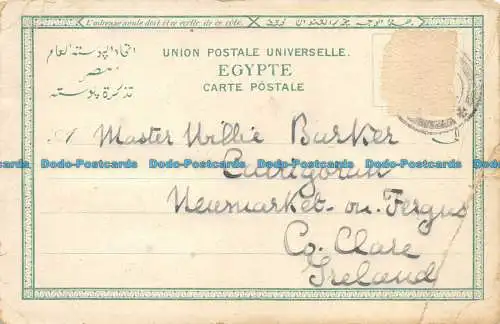 L'adresse seule doit être écrite de ce côté.
اتحاد البوسته العام
مصر
تذكرة بوسته
UNION POSTALE UNIVERSELLE.
EGYPTE
CARTE POSTALE
Master Willie Barker
Carrigoran
Newmarket-on-Fergus
Co. Clare
Ireland
Dodo-Postcards Dodo-Postcards Dodo-Postcards Dodo-Postcards
Dodo-Postcards Dodo-Postcards Dodo-Postcards Dodo-Postcards